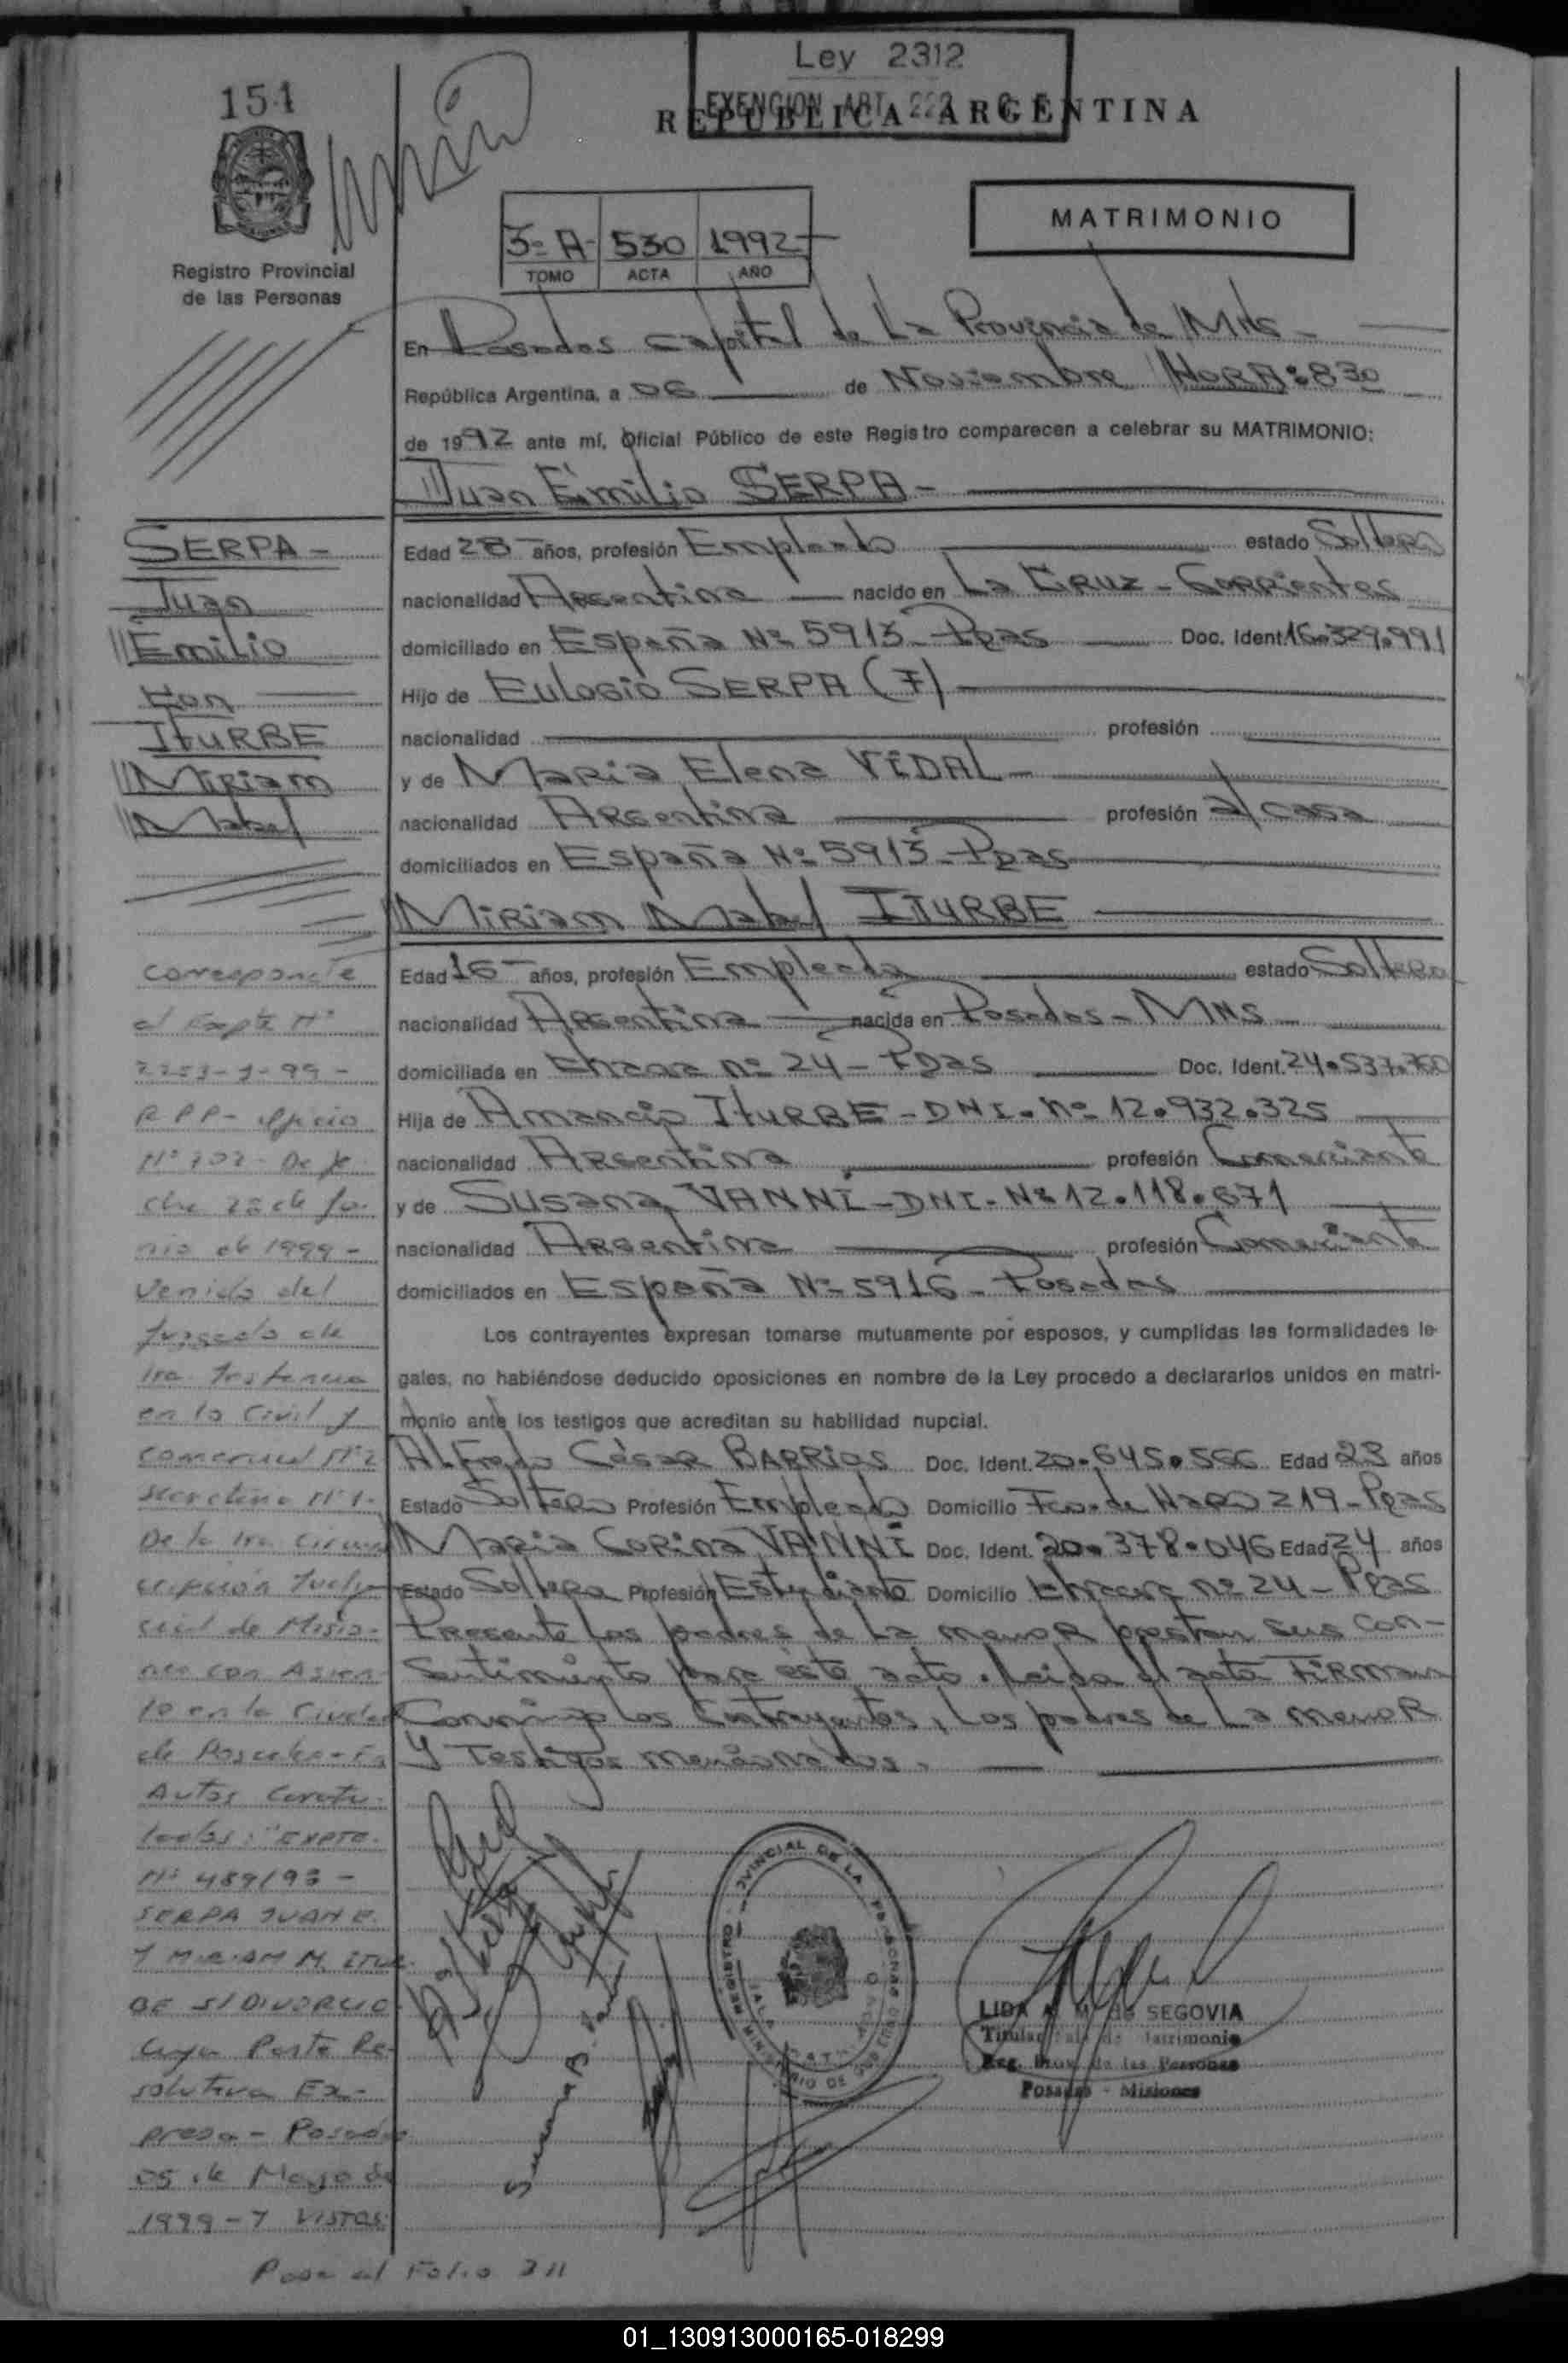 Ley 2312
EXENCION ART 222
REPUBLICA ARGENTINA
151
Registro Provincial
de las Personas
3º A- 530 1992
TOMO ACTA AÑO
MATRIMONIO
En Posadas Capital de La Provincia de Mns -
República Argentina, a 06 de Noviembre HORA: 830
de 1992 ante mí, Oficial Público de este Registro comparecen a celebrar su MATRIMONIO:
Juan Emilio SERPA -
Edad 28 años, profesión Empleado estado Soltero
nacionalidad Argentina nacido en La Cruz - Corrientes
domiciliado en España Nº 5913 - Pdas Doc. Ident. 16.329.991
Hijo de Eulogio SERPA (F)
nacionalidad profesión
y de Maria Elena VIDAL -
nacionalidad Argentina profesión a/casa
domiciliados en España Nº 5913 - Pdas
Miriam Mabel ITURBE
Edad 16 años, profesión Empleada estado Soltera
nacionalidad Argentina nacida en Posadas - MNS
domiciliada en Chacra nº 24 - Pdas Doc. Ident. 24.537.700
Hija de Amancio ITURBE - DNI. Nº 12.932.325
nacionalidad Argentina profesión Comerciante
y de Susana VANNI - DNI - Nº 12.118.671
nacionalidad Argentina profesión Comerciante
domiciliados en España Nº 5916 - Posadas
Los contrayentes expresan tomarse mutuamente por esposos, y cumplidas las formalidades le-
gales, no habiéndose deducido oposiciones en nombre de la Ley procedo a declararlos unidos en matri-
monio ante los testigos que acreditan su habilidad nupcial.
Alfredo César BARRIOS Doc. Ident. 20.645.566 Edad 23 años
Estado Soltero Profesión Empleado Domicilio Fco. de Haro 219 - Pdas
Maria Corina VANNI Doc. Ident. 20.378.046 Edad 24 años
Estado Soltera Profesión Estudiante Domicilio Chacra nº 24 - Pdas
Presente los padres de La menor prestan sus con-
sentimiento para éste acto. Leída el acta Firman
Conmigo los Contrayentes, los padres de La menor
y Testigos mencionados.
SERPA -
Juan
Emilio
Con
ITURBE
Miriam
Mabel
Corresponde
al Expte Nº
2253-1-99-
RPP - Oficio
Nº 707 - De fe
cha 28 de Ju-
nio de 1999 -
Venido del
Juzgado de
1ra. Instancia
en lo Civil y
Comercial Nº 2
Secretaria Nº 1.
De la 1ra. Circuns
cripción Judi-
cial de Misio-
nes con Asien-
to en la Ciudad
de Posadas - En
Autos Caratu-
lados: "EXPTE.
Nº 489/93 -
SERPA JUAN E.
Y MIRIAM M. ITUR
BE S/ DIVORCIO
Cuya Parte Re-
solutiva Ex-
presa - Posadas
05 de Mayo de
1999 - Y VISTOS:
Pasa al Folio 311
LIDA A. M. de SEGOVIA
Titular Sala de Matrimonio
Reg. Prov. de las Personas
Posadas - Misiones
01_130913000165-018299